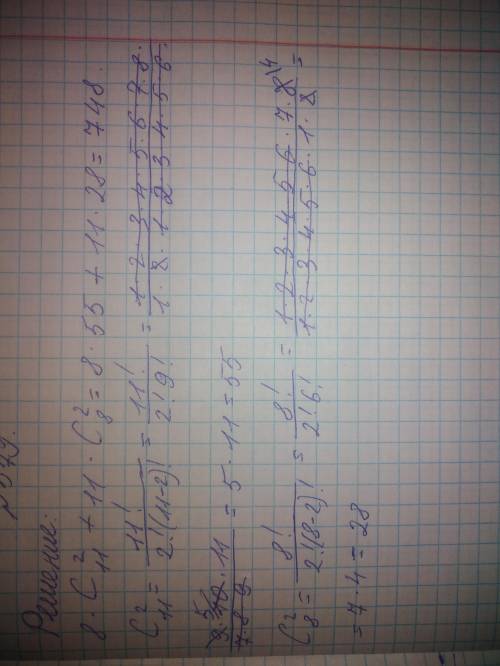 № 579.
Решение:
8 · C²₁₁ + 11 · C²₈ = 8 · 55 + 11 · 28 = 748.
C²₁₁ = 11! / 2!(11-2)! = 11! / 2!9! = 1·2·3·4·5·6·7·8· / 1·2·1·2·3·4·5·6·
9·10·11 / 7·8·9 = 5·11 = 55
C²₈ = 8! / 2!(8-2)! = 8! / 2!6! = 1·2·3·4·5·6·7·8\4 / 1·2·3·4·5·6·1·2 =
= 7·4 = 28